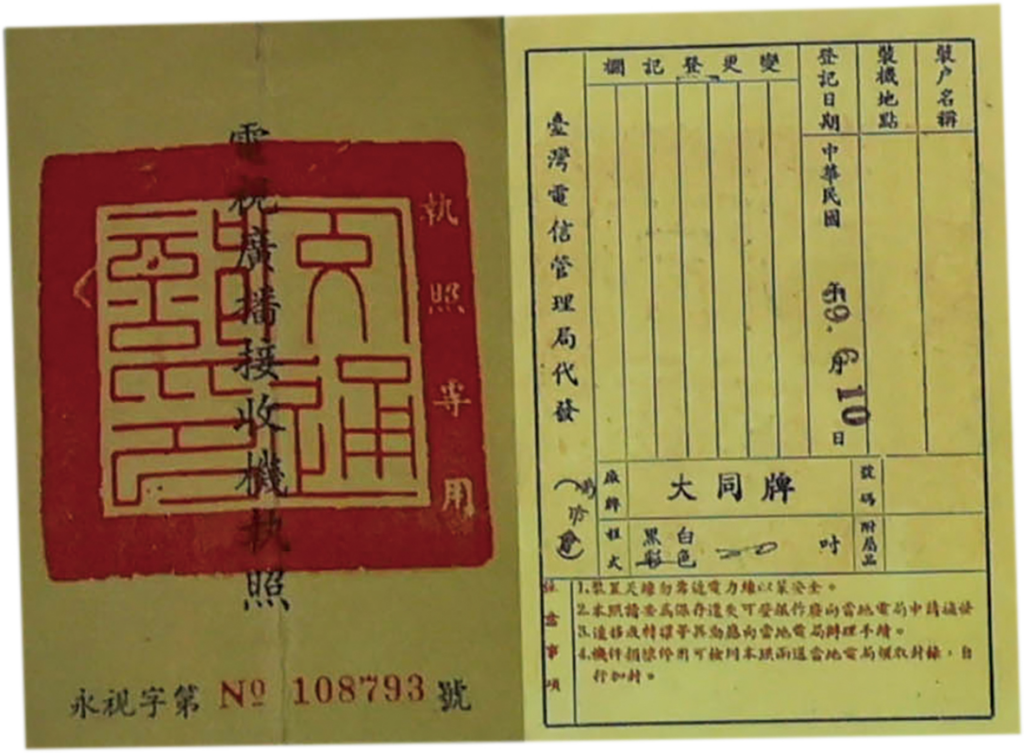 電視廣播接收機執照
執照專用
交通部印
永視字第 Nº 108793 號
裝戶名稱
裝機地點
登記日期
中華民國 年59. 6月 10日
變更登記欄
臺灣電信管理局代發
廠牌 大同牌
號碼
程式 黑白 彩色 20 吋
附屬品
注意事項
1.裝置天線勿靠近電力線以策安全。
2.本照請妥為保存遺失可登報作廢向當地電局申請補發
3.遷移或轉讓等異動應向當地電局辦理手續。
4.機件損壞停用可檢同本照函送當地電局領取封條,自
行加封。